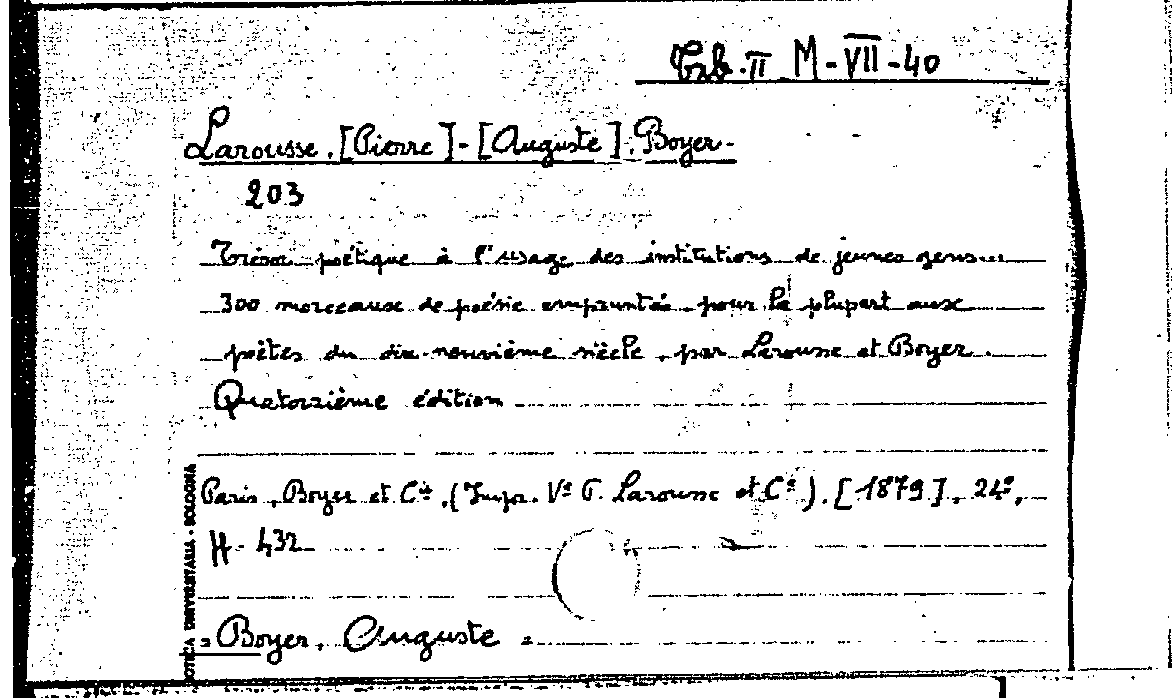 Trb. II M-VII-40
Larousse, [Pierre] - [Auguste] Boyer-
203
Trésor poétique à l'usage des institutions de jeunes gens...
300 morceaux de poésie empruntés pour la plupart aux
poètes du dix-neuvième siècle, par Larousse et Boyer.
Quatorzième édition
Paris, Boyer et Cie, (Impr. Ve P. Larousse et Cie), [1879], 24°,
H-432
= Boyer, Auguste =
OTECA UNIVERSITARIA - BOLOGNA